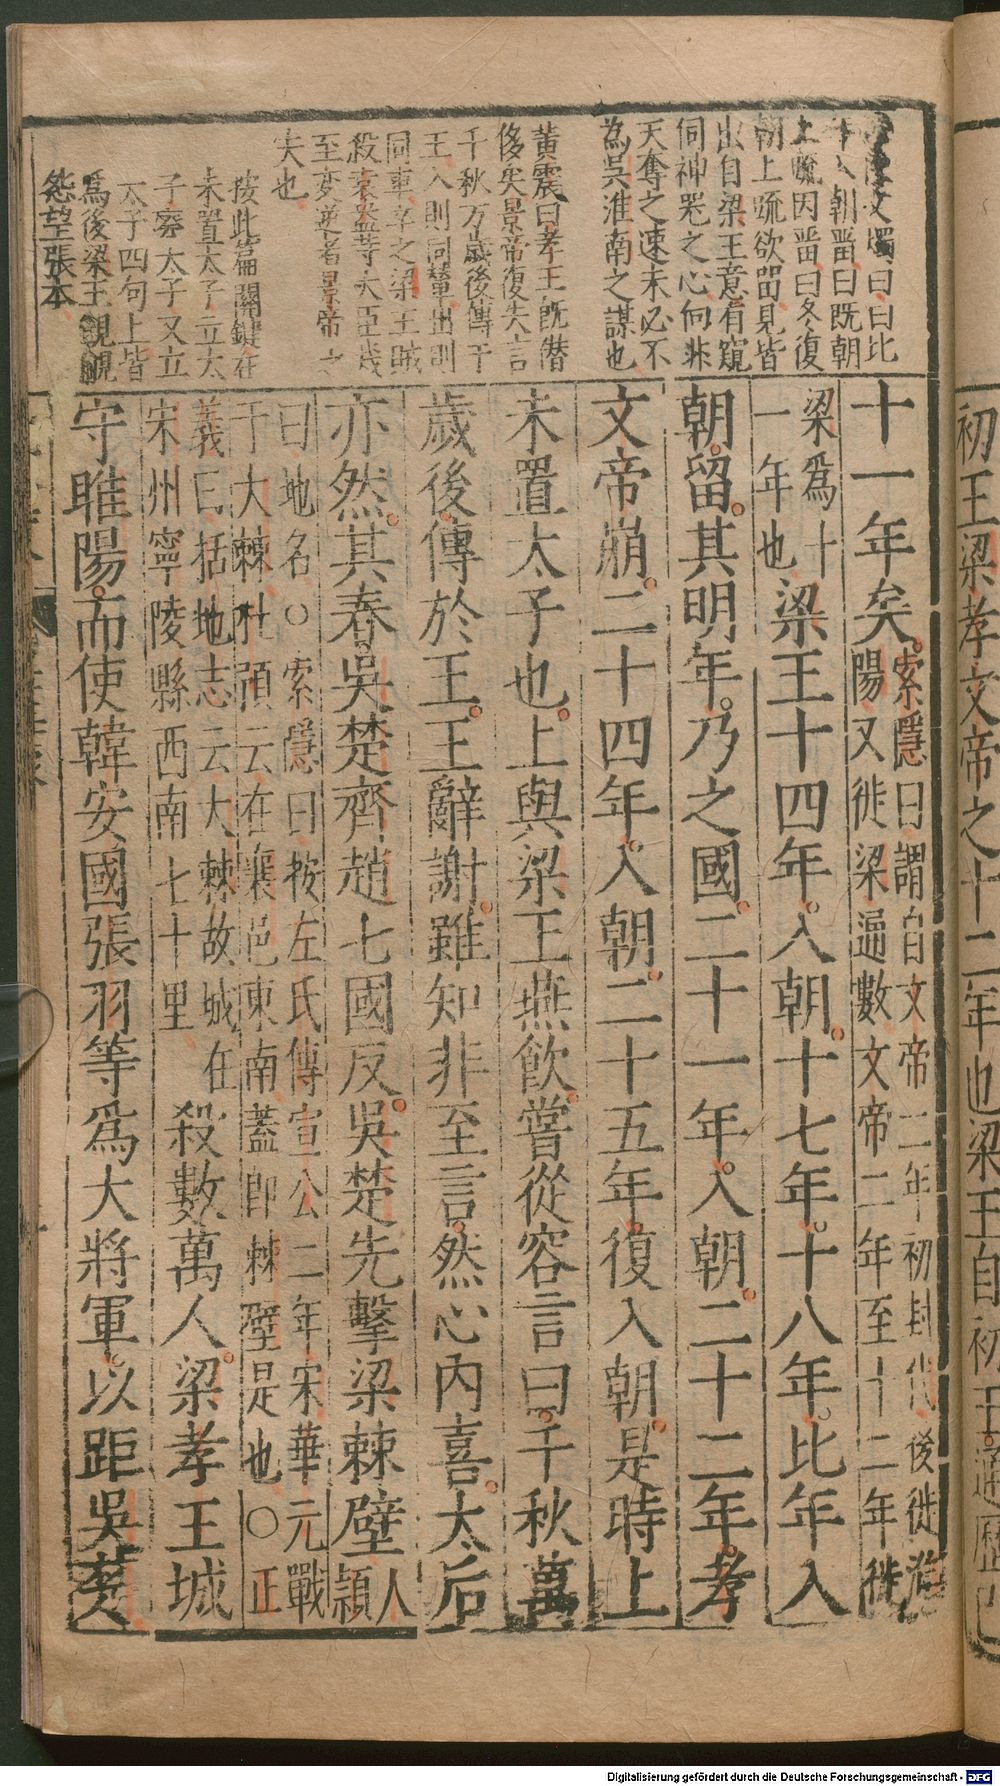 初王梁孝文帝之十二年也梁王自初王通歷已
文燭曰曰比
年入朝畱曰既朝
上疏因畱曰冬復
朝上疏欲畱見皆
出自梁王意有窺
伺神器之心何非
天奪之速未必不
為吳淮南之謀也
黃震曰孝王既僭
侈失景帝復失言
千秋万歲後傳于
王入則同輦出則
同車卒之梁王賊
殺袁盎等大臣幾
至変逆者景帝之
失也
按此篇關鍵在
未置太子立太
子廢太子又立
太子四句上皆
爲後梁王覬覦
怨望張本
十一年矣索隱曰謂自文帝二年初封代後徙淮
陽又徙梁遍數文帝二年至十二年徙
梁爲十
一年也梁王十四年入朝十七年十八年比年入
朝留其明年乃之國二十一年入朝二十二年孝
文帝崩二十四年入朝二十五年復入朝是時上
未置太子也上與梁王燕飲嘗從容言曰千秋萬
歲後傳於王王辭謝雖知非至言然心內喜太后
亦然其春吳楚齊趙七國反吳楚先擊梁棘壁人
穎
曰地名○索隱曰按左氏傳宣公二年宋華元戰
于大棘杜預云在襄邑東南蓋即棘壁是也○正
義曰括地志云大棘故城在
宋州寧陵縣西南七十里殺數萬人梁孝王城
守睢陽而使韓安國張羽等爲大將軍以距吳楚
Digitalisierung gefördert durch die Deutsche Forschungsgemeinschaft - DFG